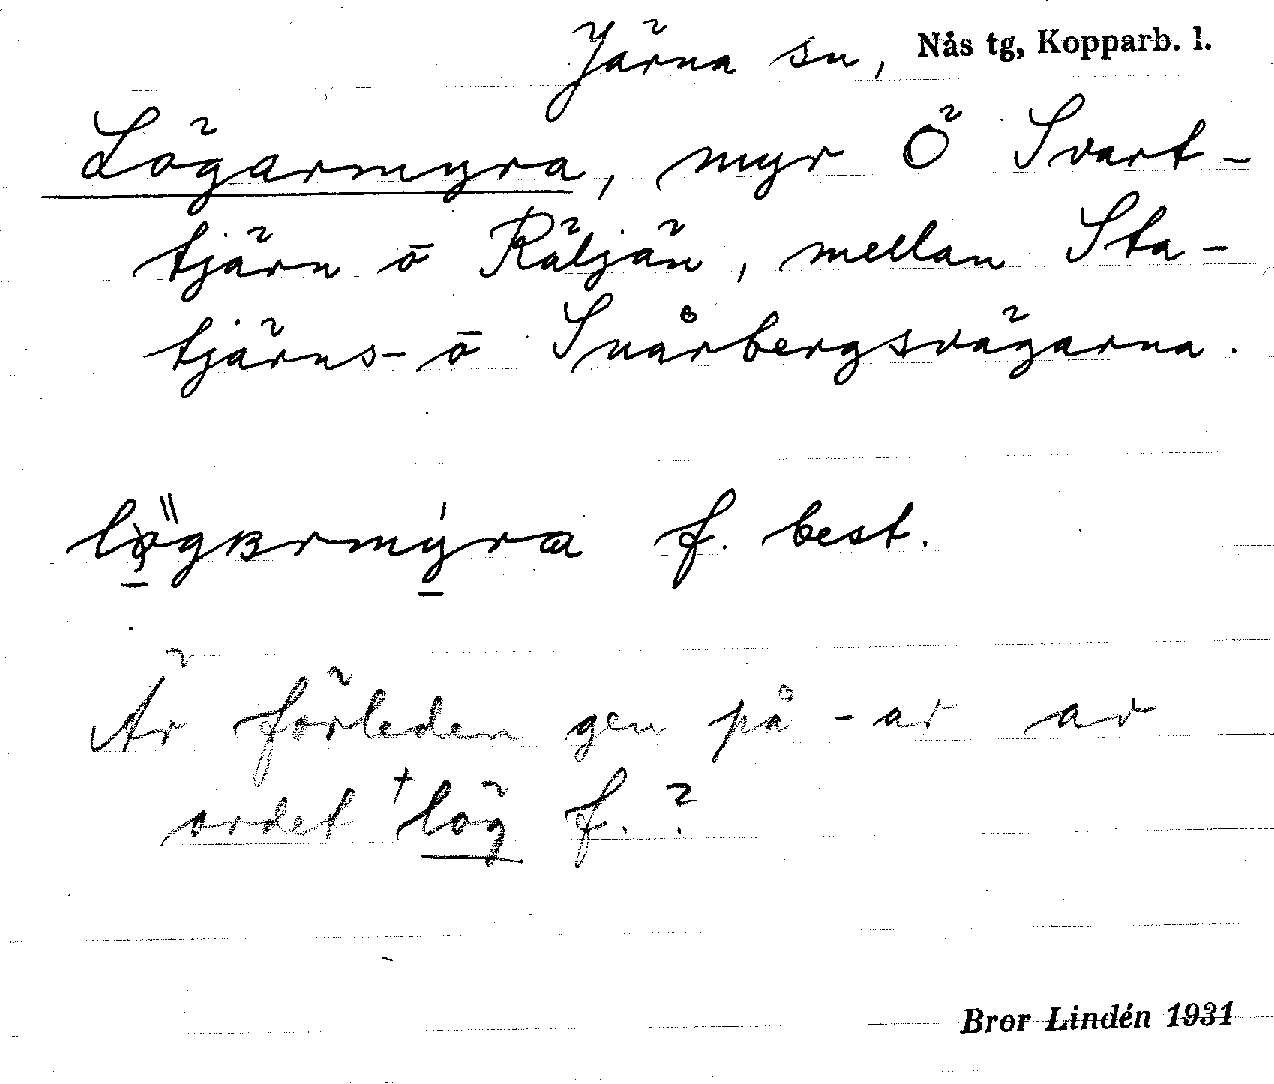 Järna sn, Nås tg, Kopparb. l.
Lögarmyra, myr Ö Svart-
tjärn o Räljän, mellan Sta-
tjärns- o Snårbergsvägarna.
lögarmyra f. best.
Är förleden gen på -ar av
ordet †lög f.?
Bror Lindén 1931